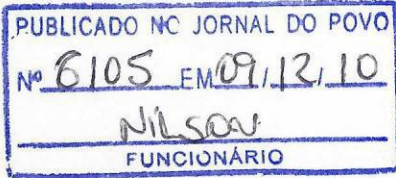 PUBLICADO NO JORNAL DO POVO
Nº 6105 EM 09/12/10
NILSON
FUNCIONÁRIO